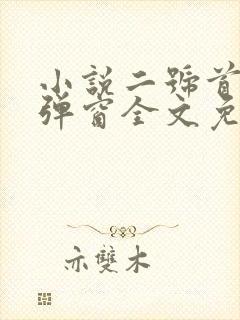 小說二號首
彈窗全文免
亦雙木